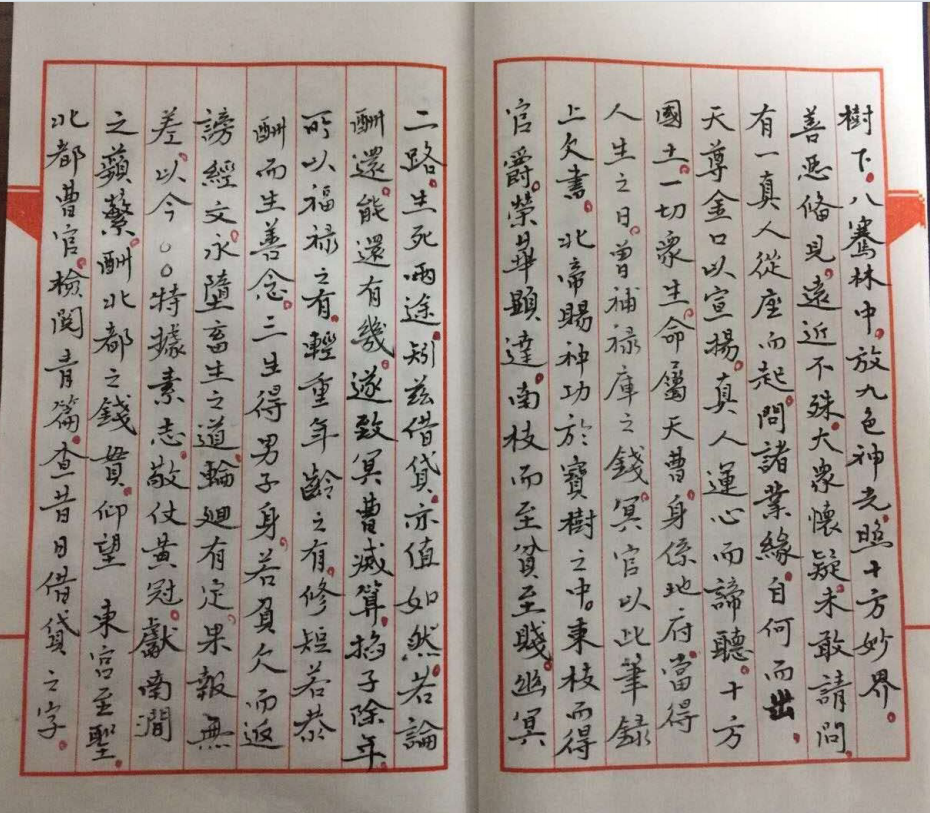 樹下。八騫林中。放九色神光。照十方妙界。
善惡俻見。遠近不殊。大衆懷疑。未敢請問。
有一真人從座而起。問諸業緣。自何而出。
天尊金口以宣揚。真人運心而諦聽。十方
國土。一切衆生。命屬天曹。身係地府。當得
人生之日。曾補禄庫之錢。冥官以此筆録
上欠書。北帝賜神功於寳樹之中。東枝而得
官爵。榮華顯達。南枝而至貧至賤。幽冥
二路。生死兩途。矧兹借貸。亦值如然。若論
酬還。能還有幾。遂致冥曹減算。掐子除年。
所以福禄之有。輕重年齡之有。修短若恭
酬而生善念。三生得男子身。若負欠而返
謗經文。永墮畜生之道。輪廻有定。果報無
差。以今○○特據素志。敬仗黃冠。獻南澗
之蘋蘩。酬北都之錢貫。仰望 東宮至聖。
北都曹官。檢閱青篇。查昔日借貸之字。